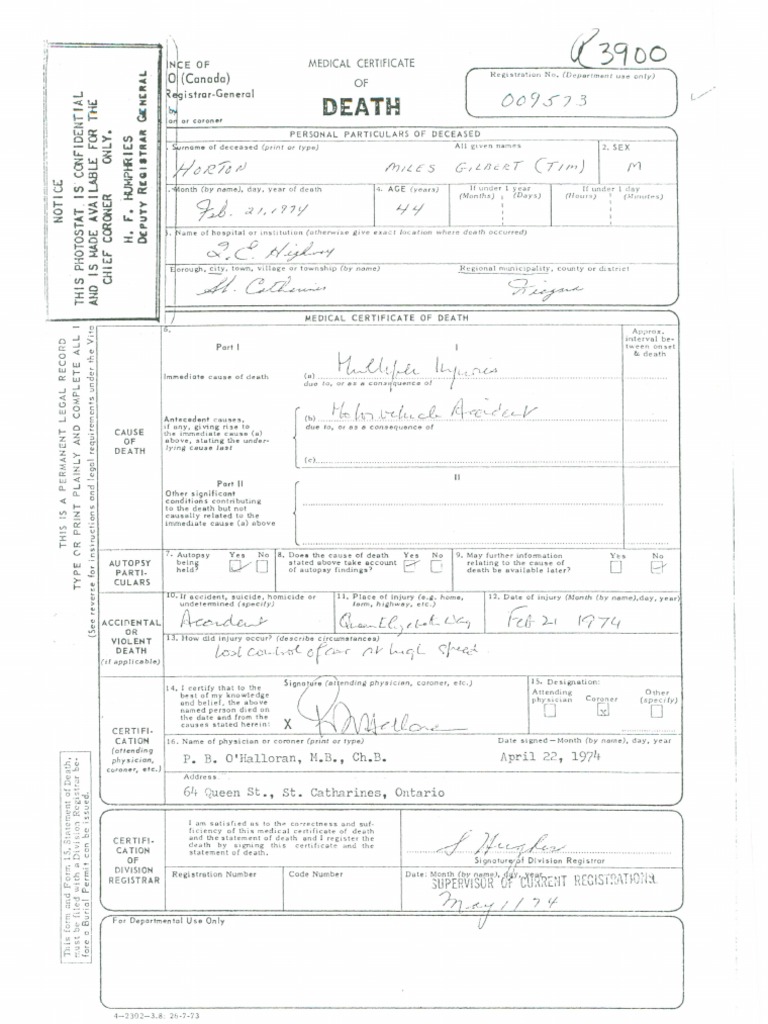 R 3900
NOTICE
THIS PHOTOSTAT IS CONFIDENTIAL
AND IS MADE AVAILABLE FOR THE
CHIEF CORONER ONLY.
H. F. HUMPHRIES
DEPUTY REGISTRAR GENERAL
NCE OF
O (Canada)
Registrar-General
by
or coroner
MEDICAL CERTIFICATE
OF
DEATH
Registration No. (Department use only)
009573
PERSONAL PARTICULARS OF DECEASED
Surname of deceased (print or type) All given names 2. SEX
HORTON MILES GILBERT (TIM) M
Month (by name), day, year of death 4. AGE (years) If under 1 year (Months) (Days) If under 1 day (Hours) (Minutes)
Feb. 21, 1974 44
Name of hospital or institution (otherwise give exact location where death occurred)
Q.E. Highway
Borough, city, town, village or township (by name) Regional municipality, county or district
St. Catharines Niagara
MEDICAL CERTIFICATE OF DEATH
THIS IS A PERMANENT LEGAL RECORD
TYPE OR PRINT PLAINLY AND COMPLETE ALL I
(See reverse for instructions and legal requirements under the Vita
CAUSE
OF
DEATH
6.
Approx.
interval be-
tween onset
& death
Part I I
Immediate cause of death (a) Multiple Injuries
due to, or as a consequence of
Antecedent causes,
if any, giving rise to
the immediate cause (a)
above, stating the under-
lying cause last
(b) Motor vehicle Accident
due to, or as a consequence of
(c)
Part II II
Other significant
conditions contributing
to the death but not
causally related to the
immediate cause (a) above
AUTOPSY
PARTI-
CULARS
7. Autopsy
being
held?
Yes No
8. Does the cause of death
stated above take account
of autopsy findings?
Yes No
9. May further information
relating to the cause of
death be available later?
Yes No
ACCIDENTAL
OR
VIOLENT
DEATH
(if applicable)
10. If accident, suicide, homicide or
undetermined (specify)
Accident
11. Place of injury (e.g. home,
farm, highway, etc.)
Queen Elizabeth Way
12. Date of injury (Month (by name), day, year)
Feb 21 1974
13. How did injury occur? (describe circumstances)
Lost control of car at high speed.
CERTIFI-
CATION
(attending
physician,
coroner, etc.)
14. I certify that to the
best of my knowledge
and belief, the above
named person died on
the date and from the
causes stated herein:
Signature (attending physician, coroner, etc.)
X P B O'Halloran
15. Designation:
Attending
physician
Coroner
x
Other
(specify)
16. Name of physician or coroner (print or type) Date signed—Month (by name), day, year
P. B. O'Halloran, M.B., Ch.B. April 22, 1974
Address
64 Queen St., St. Catharines, Ontario
This form and Form 15, Statement of Death,
must be filed with a Division Registrar be-
fore a Burial Permit can be issued.
CERTIFI-
CATION
OF
DIVISION
REGISTRAR
I am satisfied as to the correctness and suf-
ficiency of this medical certificate of death
and the statement of death and I register the
death by signing this certificate and the
statement of death.
S Hughes
Signature of Division Registrar
Registration Number Code Number Date: Month (by name), day, year
SUPERVISOR OF CURRENT REGISTRATIONS
May 1/74
For Departmental Use Only
4-2302-3.8: 26-7-73